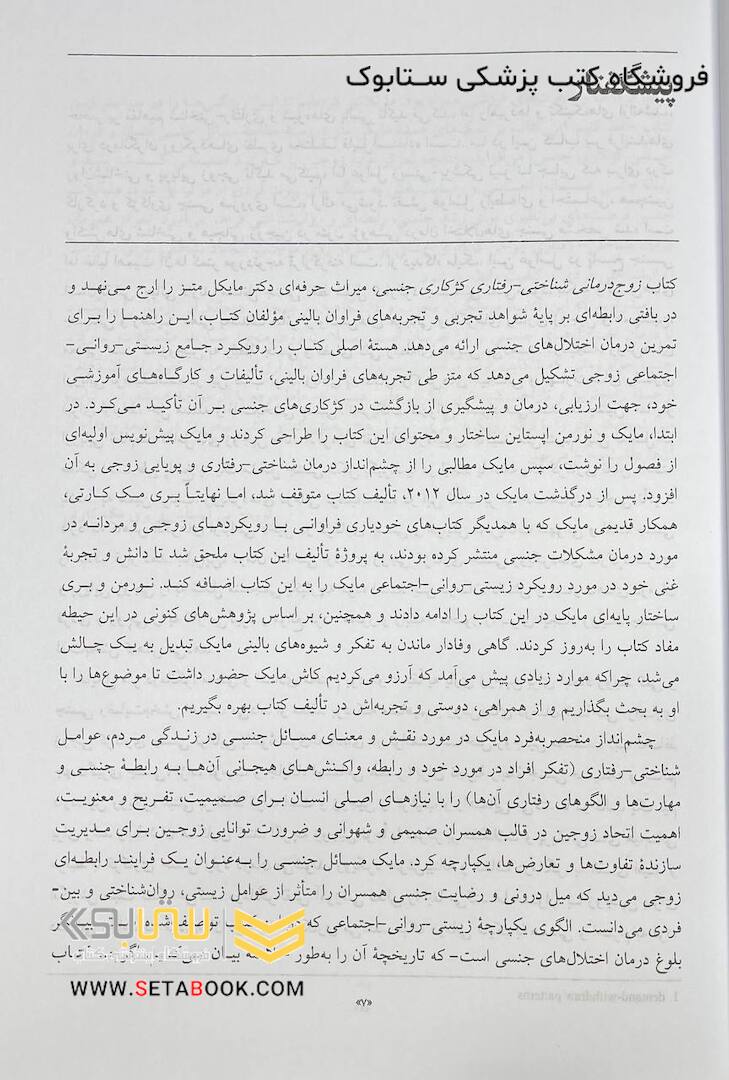 فروشگاه کتب پزشکی ستابوک
پیشگفتار
کتاب زوج‌درمانی شناختی-رفتاری کژکاری جنسی، میراث حرفه‌ای دکتر مایکل متز را ارج می‌نهد و
در بافتی رابطه‌ای بر پایهٔ شواهد تجربی و تجربه‌های فراوان بالینی مؤلفان کتاب، این راهنما را برای
تمرین درمان اختلال‌های جنسی ارائه می‌دهد. هستهٔ اصلی کتاب را رویکرد جامع زیستی-روانی-
اجتماعی زوجی تشکیل می‌دهد که متز طی تجربه‌های فراوان بالینی، تألیفات و کارگاه‌های آموزشی
خود، جهت ارزیابی، درمان و پیشگیری از بازگشت در کژکاری‌های جنسی بر آن تأکید می‌کرد. در
ابتدا، مایک و نورمن اپستاین ساختار و محتوای این کتاب را طراحی کردند و مایک پیش‌نویس اولیه‌ای
از فصول را نوشت، سپس مایک مطالبی را از چشم‌انداز درمان شناختی-رفتاری و پویایی زوجی به آن
افزود. پس از درگذشت مایک در سال ۲۰۱۲، تألیف کتاب متوقف شد، اما نهایتاً بری مک کارتی،
همکار قدیمی مایک که با همدیگر کتاب‌های خودیاری فراوانی با رویکردهای زوجی و مردانه در
مورد درمان مشکلات جنسی منتشر کرده بودند، به پروژهٔ تألیف این کتاب ملحق شد تا دانش و تجربهٔ
غنی خود در مورد رویکرد زیستی-روانی-اجتماعی مایک را به این کتاب اضافه کند. نورمن و بری
ساختار پایه‌ای مایک در این کتاب را ادامه دادند و همچنین، بر اساس پژوهش‌های کنونی در این حیطه
مفاد کتاب را به‌روز کردند. گاهی وفادار ماندن به تفکر و شیوه‌های بالینی مایک تبدیل به یک چالش
می‌شد، چراکه موارد زیادی پیش می‌آمد که آرزو می‌کردیم کاش مایک حضور داشت تا موضوع‌ها را با
او به بحث بگذاریم و از همراهی، دوستی و تجربه‌اش در تألیف کتاب بهره بگیریم.
چشم‌انداز منحصربه‌فرد مایک در مورد نقش و معنای مسائل جنسی در زندگی مردم، عوامل
شناختی-رفتاری (تفکر افراد در مورد خود و رابطه، واکنش‌های هیجانی آن‌ها به رابطهٔ جنسی و
مهارت‌ها و الگوهای رفتاری آن‌ها) را با نیازهای اصلی انسان برای صمیمیت، تفریح و معنویت،
اهمیت اتحاد زوجین در قالب همسران صمیمی و شهوانی و ضرورت توانایی زوجین برای مدیریت
سازندهٔ تفاوت‌ها و تعارض‌ها، یکپارچه کرد. مایک مسائل جنسی را به‌عنوان یک فرایند رابطه‌ای
زوجی می‌دید که میل درونی و رضایت جنسی همسران را متأثر از عوامل زیستی، روان‌شناختی و بین-
فردی می‌دانست. الگوی یکپارچهٔ زیستی-روانی-اجتماعی که در این کتاب توصیف شده
بلوغ درمان اختلال‌های جنسی است- که تاریخچهٔ آن را به‌طور بیان
ستابوک
WWW.SETABOOK.COM
«۷»
1. demand-withdraw patterns